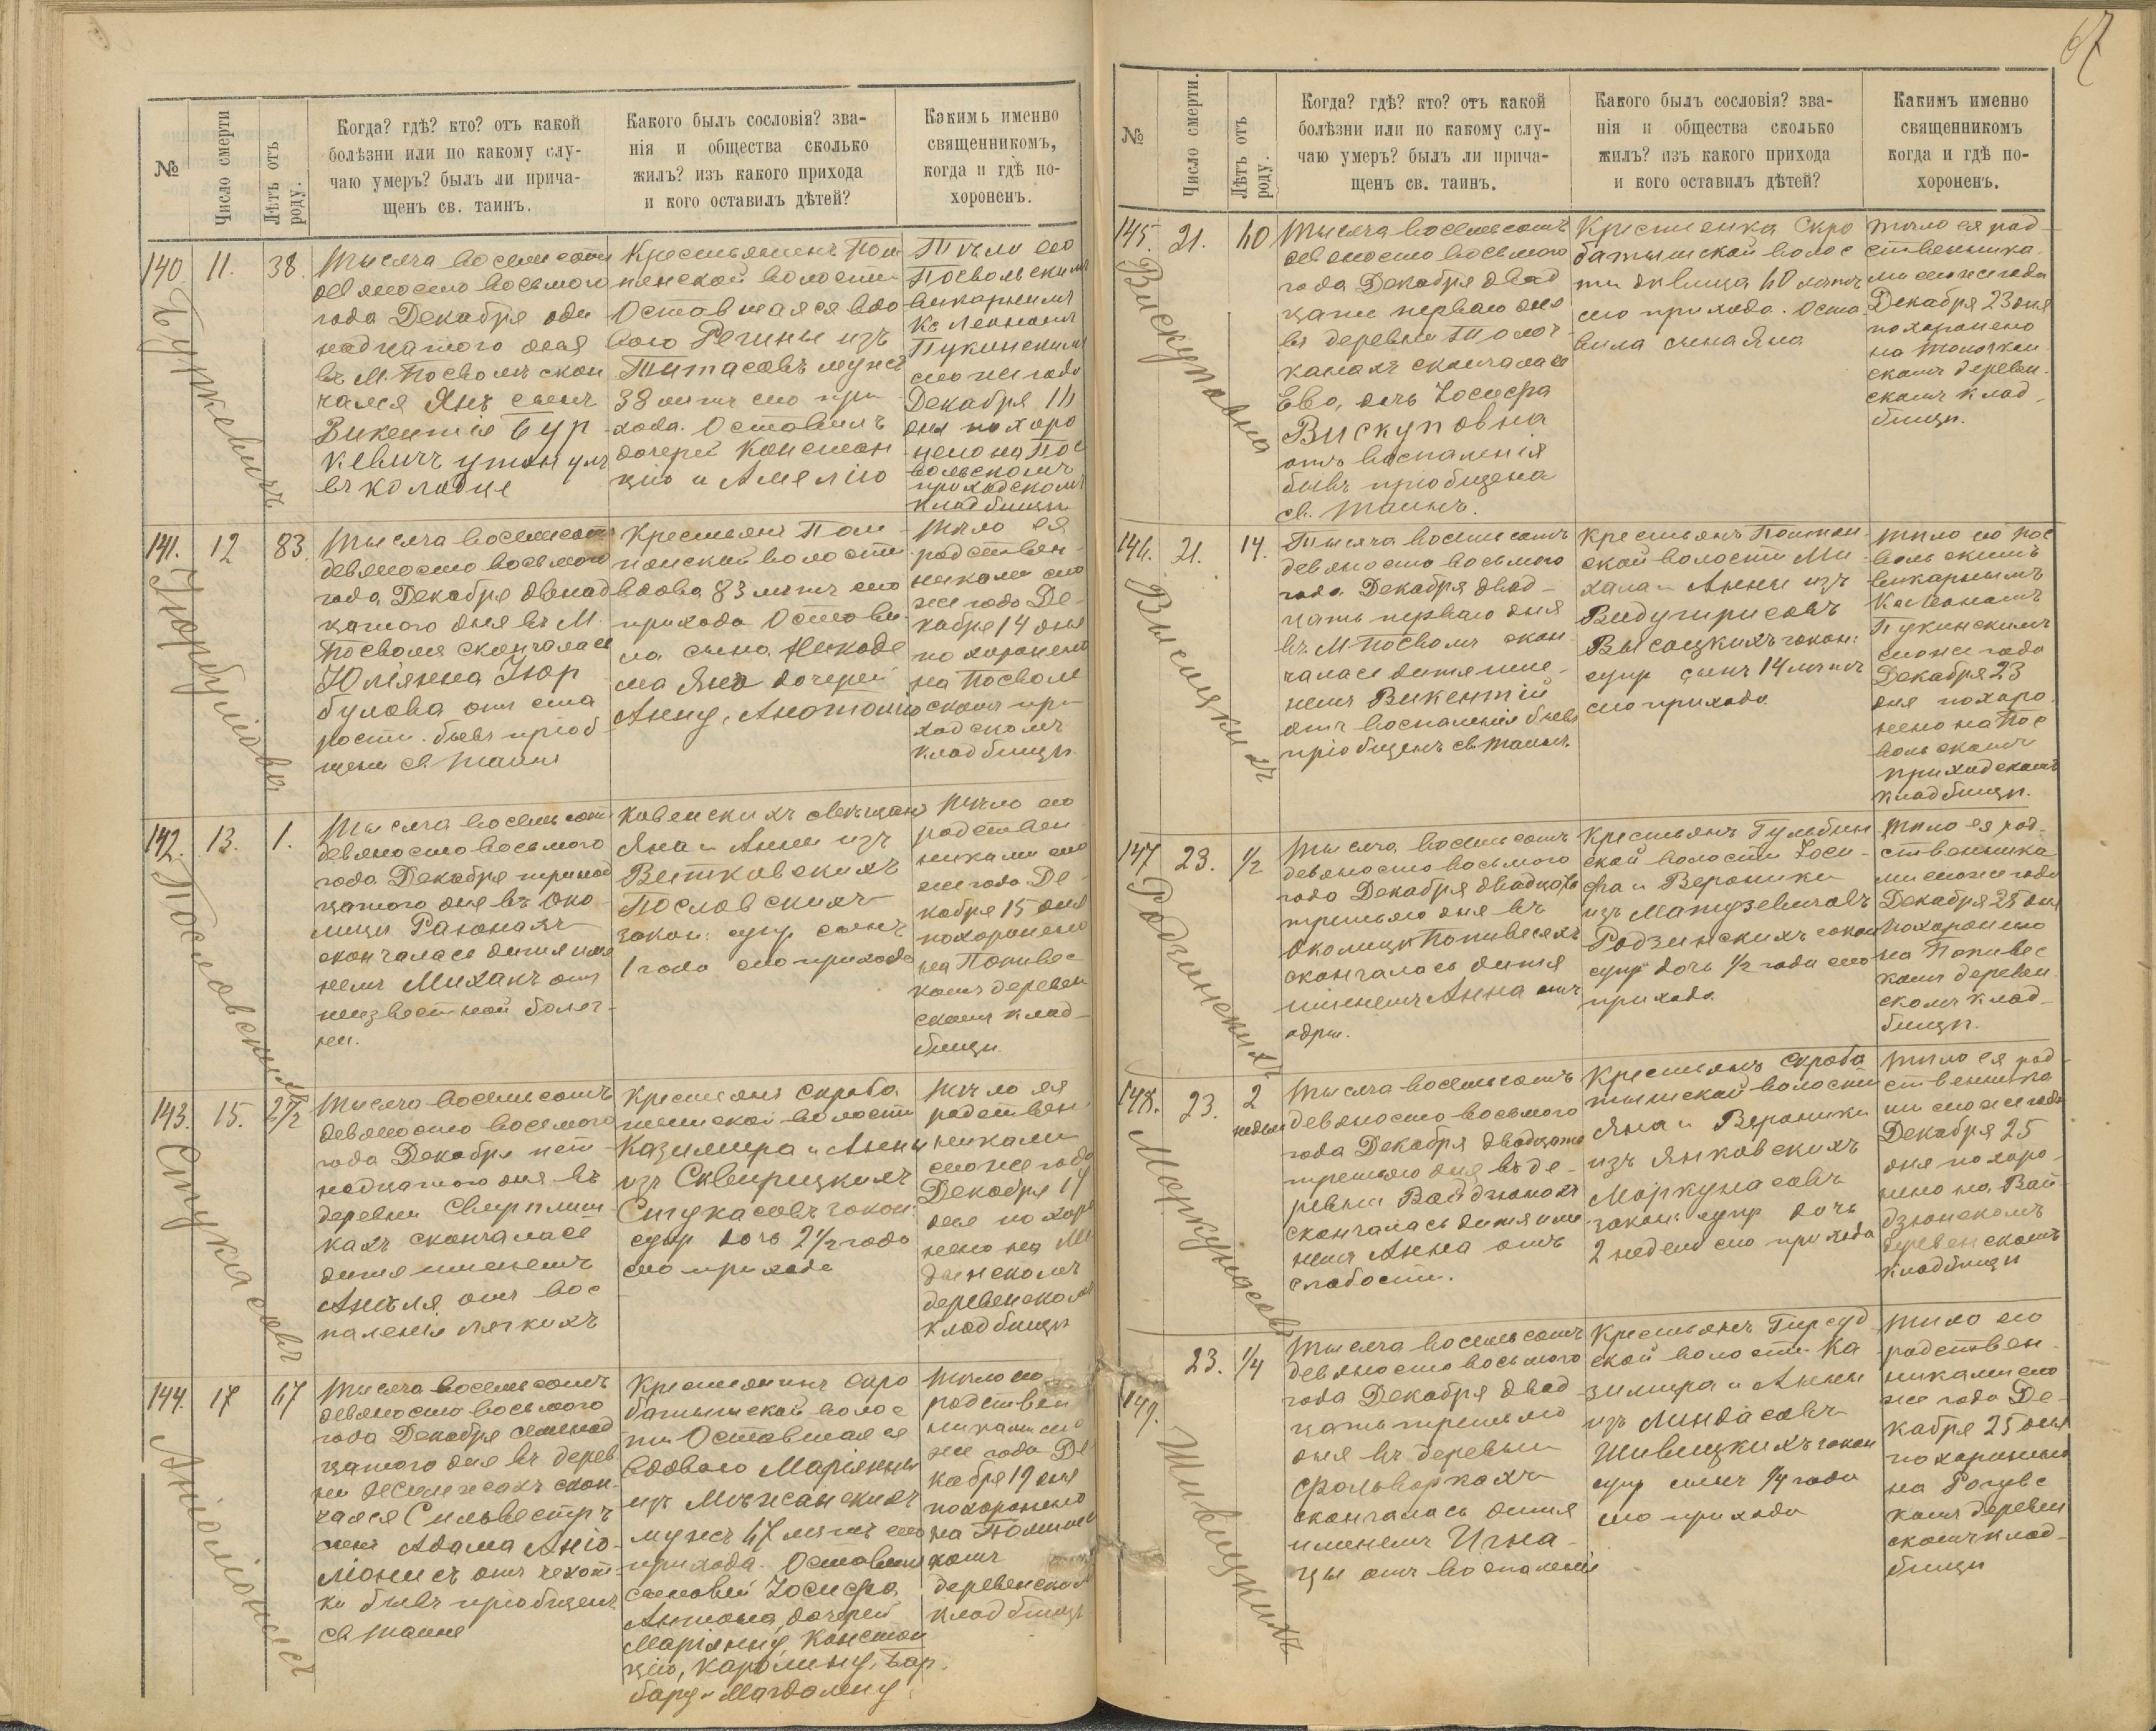 67
№
Число смерти
Лѣтъ отъ роду.
Когда? гдѣ? кто? отъ какой
болѣзни или по какому слу-
чаю умеръ? былъ ли прича-
щенъ св. таинъ.
Какого былъ сословія? зва-
нія и общества сколько
жилъ? изъ какого прихода
и кого оставилъ дѣтей?
Какимъ именно
священникомъ,
когда и гдѣ по-
хороненъ.
140
Буркевичъ
11.
38.
Тысяча восемьсотъ
девяносто восьмого
года Декабря оди
надцатого дня
въ М. Посволѣ скон
чался Янъ сынъ
Викентія Бур
кевичъ утонулъ
въ колодце
Крестьянинъ Пом
пенской волости
Оставшаяся вдо
вою Регины изъ
Титасовъ мужъ
38 летъ сего при
хода. Оставилъ
дочерей Констан
цію и Амелію
Тѣло его
Посвольскимъ
викарнымъ
Кс Леономъ
Пукинскимъ
сего же года
Декабря 14
дня похоро
нено на Пос
вольскомъ
приходскомъ
кладбищѣ
141.
Юрбулова
12
83.
Тысяча восемьсотъ
девяносто восьмого
года Декабря двенад
цатого дня въ М.
Посволя скончалась
Юліянна Юр
булова отъ ста
рости бывъ пріоб
щена св Таинъ
Крестьянъ Пом
пянской волости
вдова 83 летъ сего
прихода Остави
ла сына Никоде
ма Яна дочерей
Анну, Анотолію
Тѣло ея
родствен
никами сего
же года Де-
кабря 14 дня
похоронено
на Посволь
скомъ при
ходскомъ
кладбищѣ
142.
Пословскихъ
13.
1.
Тысяча восемьсотъ
девяносто восьмого
года Декабря тринад
цатого дня въ око
лицѣ Раюнахъ
скончалась дитя име
немъ Михалъ отъ
неизвестной болез-
ни.
Ковенскихъ мещанъ
Яна и Анны изъ
Витковскихъ
Пословскихъ
закон: супр сынъ
1 года сего прихода
Тѣло его
родствен
никами сего
же года Де-
кабря 15 дня
похоронено
на Попивес
комъ деревен
скомъ клад-
бищѣ
143.
Стукасовъ
15.
2½
Тысяча восемьсотъ
девяносто восьмого
года Декабря пят
надцатого дня въ
деревни Свирплиш
кахъ скончалась
дитя именемъ
Анеля отъ вос
паленія легкихъ
Крестьянъ Скроба
тишской волости
Казимира и Анны
изъ Сквирицкихъ
Стукасовъ закон:
супр дочь 2½ года
сего прихода
Тѣло ея
родствен
никами
сего же года
Декабря 17
дня похоро
нено на
деревенскомъ
кладбищѣ
144.
Аніоліонисъ
17
67
Тысяча восемьсотъ
девяносто восьмого
года Декабря семнад
цатого дня въ дерев
скон-
чался Сильвестръ
сынъ Адама Аніо-
ліонисъ отъ чехот
ки бывъ пріобщенъ
св Таинъ
Крестьянинъ Скро
батишской волос
ти Оставшаяся
вдовою Маріянны
изъ
мужъ 67 летъ сего
прихода. Оставилъ
сыновей Іосифа,
Антона, дочерей
Маріянну, Констан
цію, Каролину, Бар
бару и Магдолену
Тѣло его
родствен
никами сего
же года Де
кабря 19 дня
похоронено
на
комъ
деревенскомъ
кладбищѣ
№
Число смерти.
Лѣтъ отъ роду.
Когда? гдѣ? кто? отъ какой
болѣзни или по какому слу-
чаю умеръ? былъ ли прича-
щенъ св. таинъ.
Какого былъ сословія? зва-
нія и общества сколько
жилъ? изъ какого прихода
и кого оставилъ дѣтей?
Какимъ именно
священникомъ
когда и гдѣ по-
хороненъ.
145.
Вискуповна
21.
60
Тысяча восемьсотъ
девяносто восьмого
года Декабря двад
цать первого дня
въ деревни Толоч
канахъ скончалась
Ева, дочь Іосифа
Вискуповна
отъ воспаленія
бывъ пріобщена
св. Таинъ.
Крестьянка Скро
батышской волос
ти девица 60 летъ
сего прихода. Оста
вила сына Яна
Тѣло ея род-
ственника
ми сего же года
Декабря 23 дня
похоронено
на Толочкан
скомъ деревен
скомъ клад-
бищѣ.
146.
Высоцкихъ
21.
14.
Тысяча восемьсотъ
девяносто восьмого
года Декабря двад-
цать первого дня
въ М Посволѣ скон
чалась дитя име-
немъ Викентій
отъ воспаленія бывъ
пріобщенъ св Таинъ.
Крестьянъ Помпян
ской волости Ми
хала и Анны изъ
Видугирисовъ
Высоцкихъ закон:
супр сынъ 14 летъ
сего прихода
Тѣло его Пос
вольскимъ
викарнымъ
Кс Леономъ
Пукинскимъ
сего же года
Декабря 23
дня похоро
нено на Пос
вольскомъ
приходскомъ
кладбищѣ.
147
Родзинскихъ
23.
½
Тысяча восемьсотъ
девяносто восьмого
года Декабря двадцать
третьяго дня въ
околицѣ Попивесяхъ
скончалась дитя
именемъ Анна отъ
одри.
Крестьянъ Гульбин
ской волости Іоси-
фа и Вероники
изъ Матузевичовъ
Родзинскихъ закон
супр дочь ½ года сего
прихода.
Тѣло ея род-
ственника
ми сего же года
Декабря 25 дня
похоронено
на Попивес
комъ деревен
скомъ клад-
бищѣ.
148.
Моркунасовъ
23.
2
недели
Тысяча восемьсотъ
девяносто восьмого
года Декабря двадцать
третьяго дня въ де-
ревни Вайдзюнахъ
скончалась дитя име
немъ Анна отъ
слабости.
Крестьянъ Скроба
тышской волости
Яна и Вероники
изъ Янковскихъ
Моркунасовъ
закон: супр дочь
2 недели сего прихода
Тѣло ея род
ственника
ми сего же года
Декабря 25
дня похоро-
нено на Вай
дзюнскомъ
деревенскомъ
кладбищѣ
149.
Шивицкихъ
23.
¼
Тысяча восемьсотъ
девяносто восьмого
года Декабря двад
цать третьяго
дня въ деревни
Фольворкахъ
скончалась дитя
именемъ Игна-
цы отъ воспаленія
Крестьянъ Гирсуд
ской волости Ка
зимира и Анны
изъ Линдасовъ
Шивицкихъ закон
супр сынъ ¼ года
сего прихода
Тѣло его
родствен
никами сего
же года Де-
кабря 25 дня
похоронено
на Рогувс
комъ деревен
скомъ клад-
бищѣ